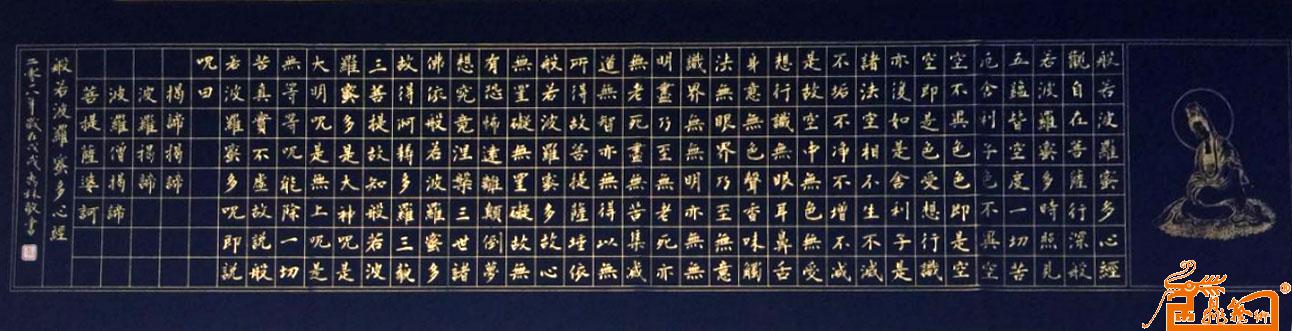 般若波羅蜜多心經
觀自在菩薩行深般
若波羅蜜多時照見
五蘊皆空度一切苦
厄舍利子色不異空
空不異色色即是空
空即是色受想行識
亦復如是舍利子是
諸法空相不生不滅
不垢不净不增不减
是故空中無色無受
想行識無眼耳鼻舌
身意無色聲香味觸
法無眼界乃至無意
識界無無明亦無無
明盡乃至無老死亦
無老死盡無苦集滅
道無智亦無得以無
所得故菩提薩埵依
般若波羅蜜多故心
無罣礙無罣礙故無
有恐怖遠離顛倒夢
想究竟涅槃三世諸
佛依般若波羅蜜多
故得阿耨多羅三藐
三菩提故知般若波
羅蜜多是大神呪是
大明呪是無上呪是
無等等呪能除一切
苦真實不虛故說般
若波羅蜜多呪即說
呪曰
揭諦揭諦
波羅揭諦
波羅僧揭諦
菩提薩婆訶
般若波羅蜜多心經
二零一八年歲在戊戌敬書